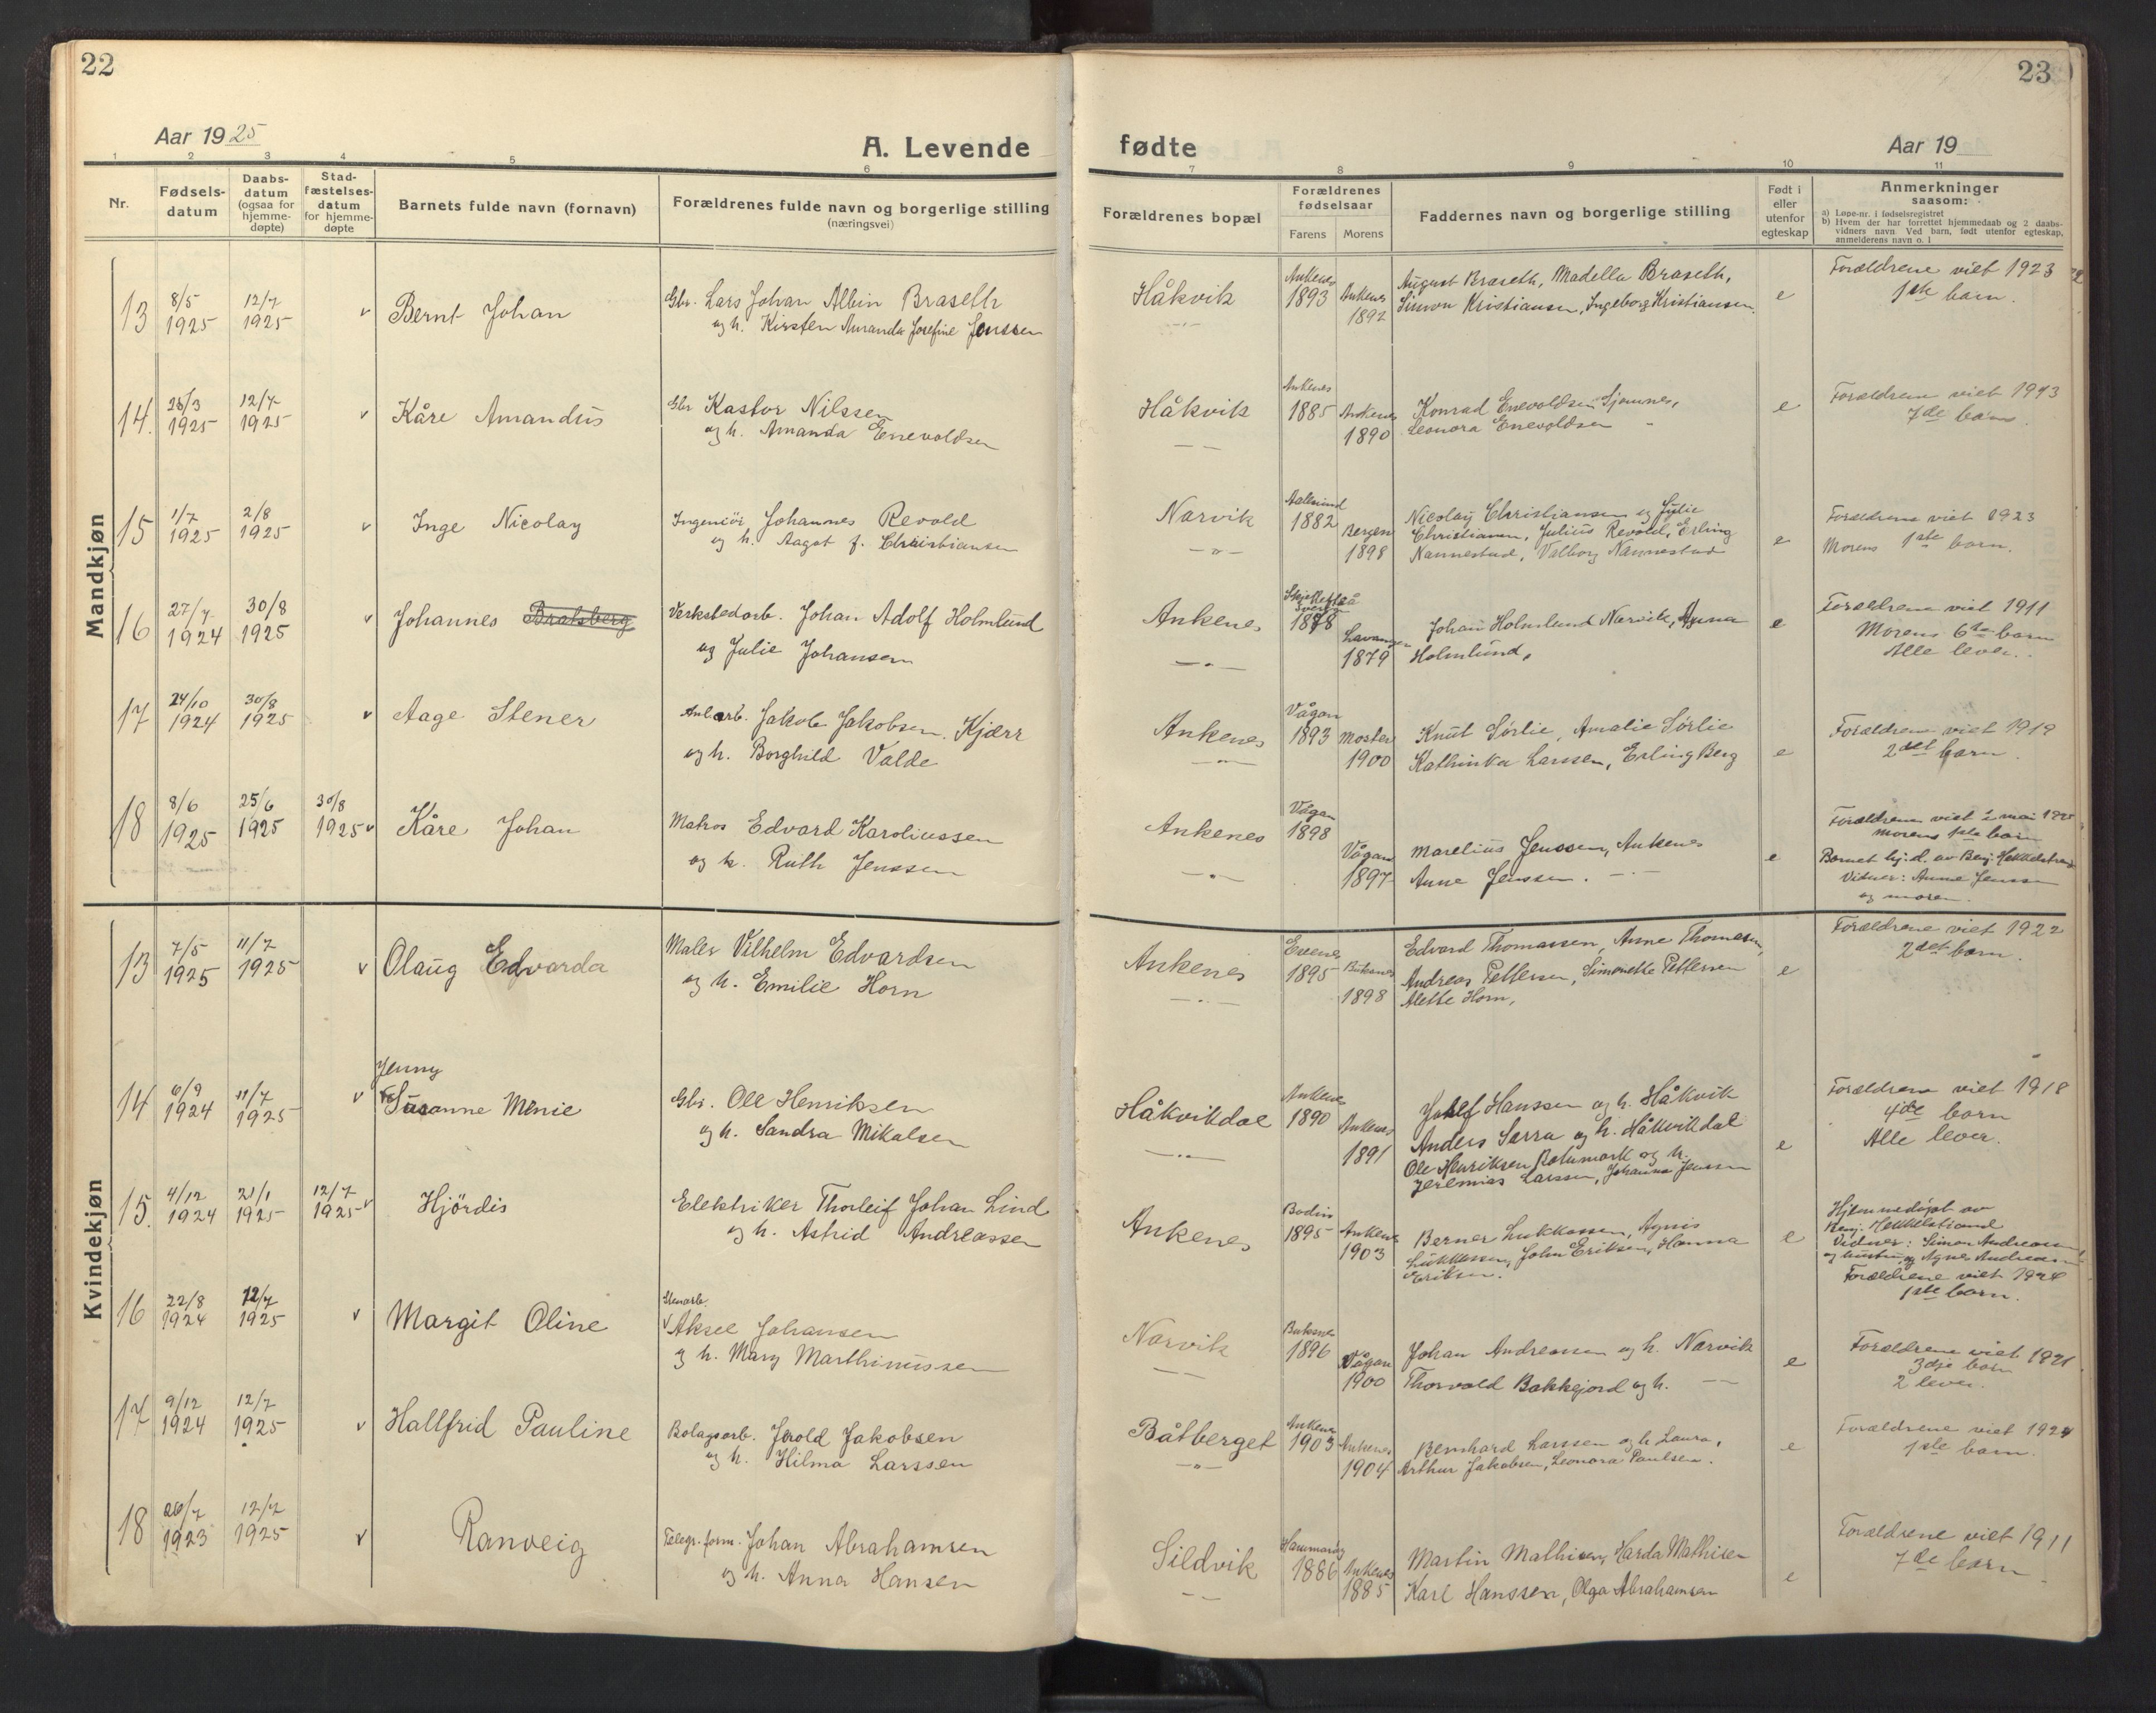 22
Aar 1925
A. Levende
1 2 3 4 5 6
Nr.
Fødsels-
datum
Daabs-
datum
(ogsaa for
hjemme-
døpte)
Stad-
fæstelses-
datum
for hjemme-
døpte
Barnets fulde navn (fornavn)
Forældrenes fulde navn og borgerlige stilling
(næringsvei)
Mandkjøn
13
8/5
1925
12/7
1925
v
Bernt Johan
Gbr. Lars Johan Albin Braseth
og h. Kirsten Amanda Josefine Jenssen
14.
28/3
1925
12/7
1925
v
Kåre Amandus
Gbr Kastor Nilssen
og h. Amanda Enevoldsen
15
1/7
1925
2/8
1925
v
Inge Nicolay
Ingeniör Johannes Revold
og h. Aagot f. Christiansen
16
27/7
1924
30/8
1925
v
Johannes Bratsberg
Verkstedarb. Johan Adolf Holmlund
og Julie Johansen
17
24/10
1924
30/8
1925
v
Aage Stener
Anl.arb. Jakob Jakobsen Kjærr
og h. Borghild Valde
18
8/6
1925
25/6
1925
30/8
1925 v
Kåre Johan
Matros Edvard Karoliussen
og h. Ruth Jenssen
Kvindekjøn
13
7/5
1925
11/7
1925
v
Olaug Edvarda
Maler Vilhelm Edvardsen
og h. Emilie Horn
14
6/9
1924
11/7
1925
v
Jenny
Susanne Menie
Gbr. Ole Henriksen
og h. Sandra Mikalsen
15.
4/12
1924
21/1
1925
12/7
1925 v
Hjördis
Elektriker Thorleif Johan Lind
og h. Astrid Andreassen
16
22/8
1924
12/7
1925
v
Margit Oline
Stenarb.
v Aksel Johansen
og h. Mary Marthinussen
17
9/12
1924
12/7
1925
v
Hallfrid Pauline
Bolagsarb. Jerold Jakobsen
og h. Hilma Larssen
18
26/7
1923
12/7
1925
v
Ranveig
Telegr.form. Johan Abrahamsen
og h. Anna Hansen
23
fødte
Aar 19
7 8 9 10 11
Forældrenes bopæl
Forældrenes
fødselsaar
Farens Morens
Faddernes navn og borgerlige stilling
Født i
eller
utenfor
egteskap
Anmerkninger
saasom:
a) Løpe-nr. i fødselsregistret
b) Hvem der har forrettet hjemmedaab og 2 daabs-
vidners navn Ved barn, født utenfor egteskap,
anmelderens navn o. l
Håkvik
Ankenes
1893
Ankenes
1892
August Braseth, Madella Braseth,
Simon Kristiansen, Ingeborg Kristiansen.
e
Forældrene viet 1923
1ste barn.
Håkvik
Ankenes
1885
Ankenes
1890
Konrad Enevoldsen
Leonora Enevoldsen
e
Forældrene viet 1913
7de barn.
Narvik
Aalesund
1882
Bergen
1898
Nicolay Christiansen og Julie
Christiansen, Julius Revold, Erling
Nannestad, Valborg Nannestad
e
Forældrene viet 1923
Morens 1ste barn.
Ankenes
1878
Lavangen
1879
Johan Holmlund Narvik, Anna
Holmlund,
e
Forældrene viet 1911
Morens 6te barn
Alle lever.
Ankenes
Vågan
1893
Moster
1900
Knut Sørlie, Amalie Sørlie
Kathinka Larssen, Erling Berg
e
Forældrene viet 1919
2det barn.
Ankenes
Vågan
1898
Vågan
1897
Marelius Jenssen, Ankenes
Anne Jenssen.
e
Forældrene viet 2 mai 1925
Morens 1ste barn
Barnet hj.d. av Benj. Hekkelstrand
Vidner: Anne Jenssen
og moren.
Ankenes
Evenes
1895
Buksnes
1898
Edvard Thomassen, Anne Thomasen,
Andreas Pettersen, Simonette Pettersen
Alette Horn,
e
Forældrene viet 1922
2det barn.
Håkvikdal
Ankenes
1890
Ankenes
1891
Josef Hanssen og h. Håkvik
Anders Sarra og h. Håkvikdal
Ole Henriksen Botnmark og h.
Jeremias Larssen, Johanna Jenssen
e
Forældrene viet 1918
4de barn
Alle lever.
Ankenes
Bodin
1895
Ankenes
1903
Berner Lukkassen, Agnis
Lukkassen, John Eriksen, Hanna
Eriksen.
e
Hjemmedöpt av
Benj. Hekkelstrand
Vidner: Simon Andreassen
og hustru og Agnes Andreassen
Forældrene viet 1924
1ste barn.
Narvik
Buksnes
1896
Vågan
1900
Johan Andreassen og h. Narvik
Thorvald Bakkejord og h.
e
Forældrene viet 1921
3dje barn
2 lever.
Båtberget
Ankenes
1903
Ankenes
1904
Bernhard Larssen og h. Laura,
Arthur Jakobsen, Leonora Paulsen.
e
Forældrene viet 1924
1ste barn.
Sildvik
Hammarøy
1886
Ankenes
1885
Martin Mathisen, Harda Mathisen
Karl Hanssen, Olga Abrahamsen
e
Forældrene viet 1911
7de barn